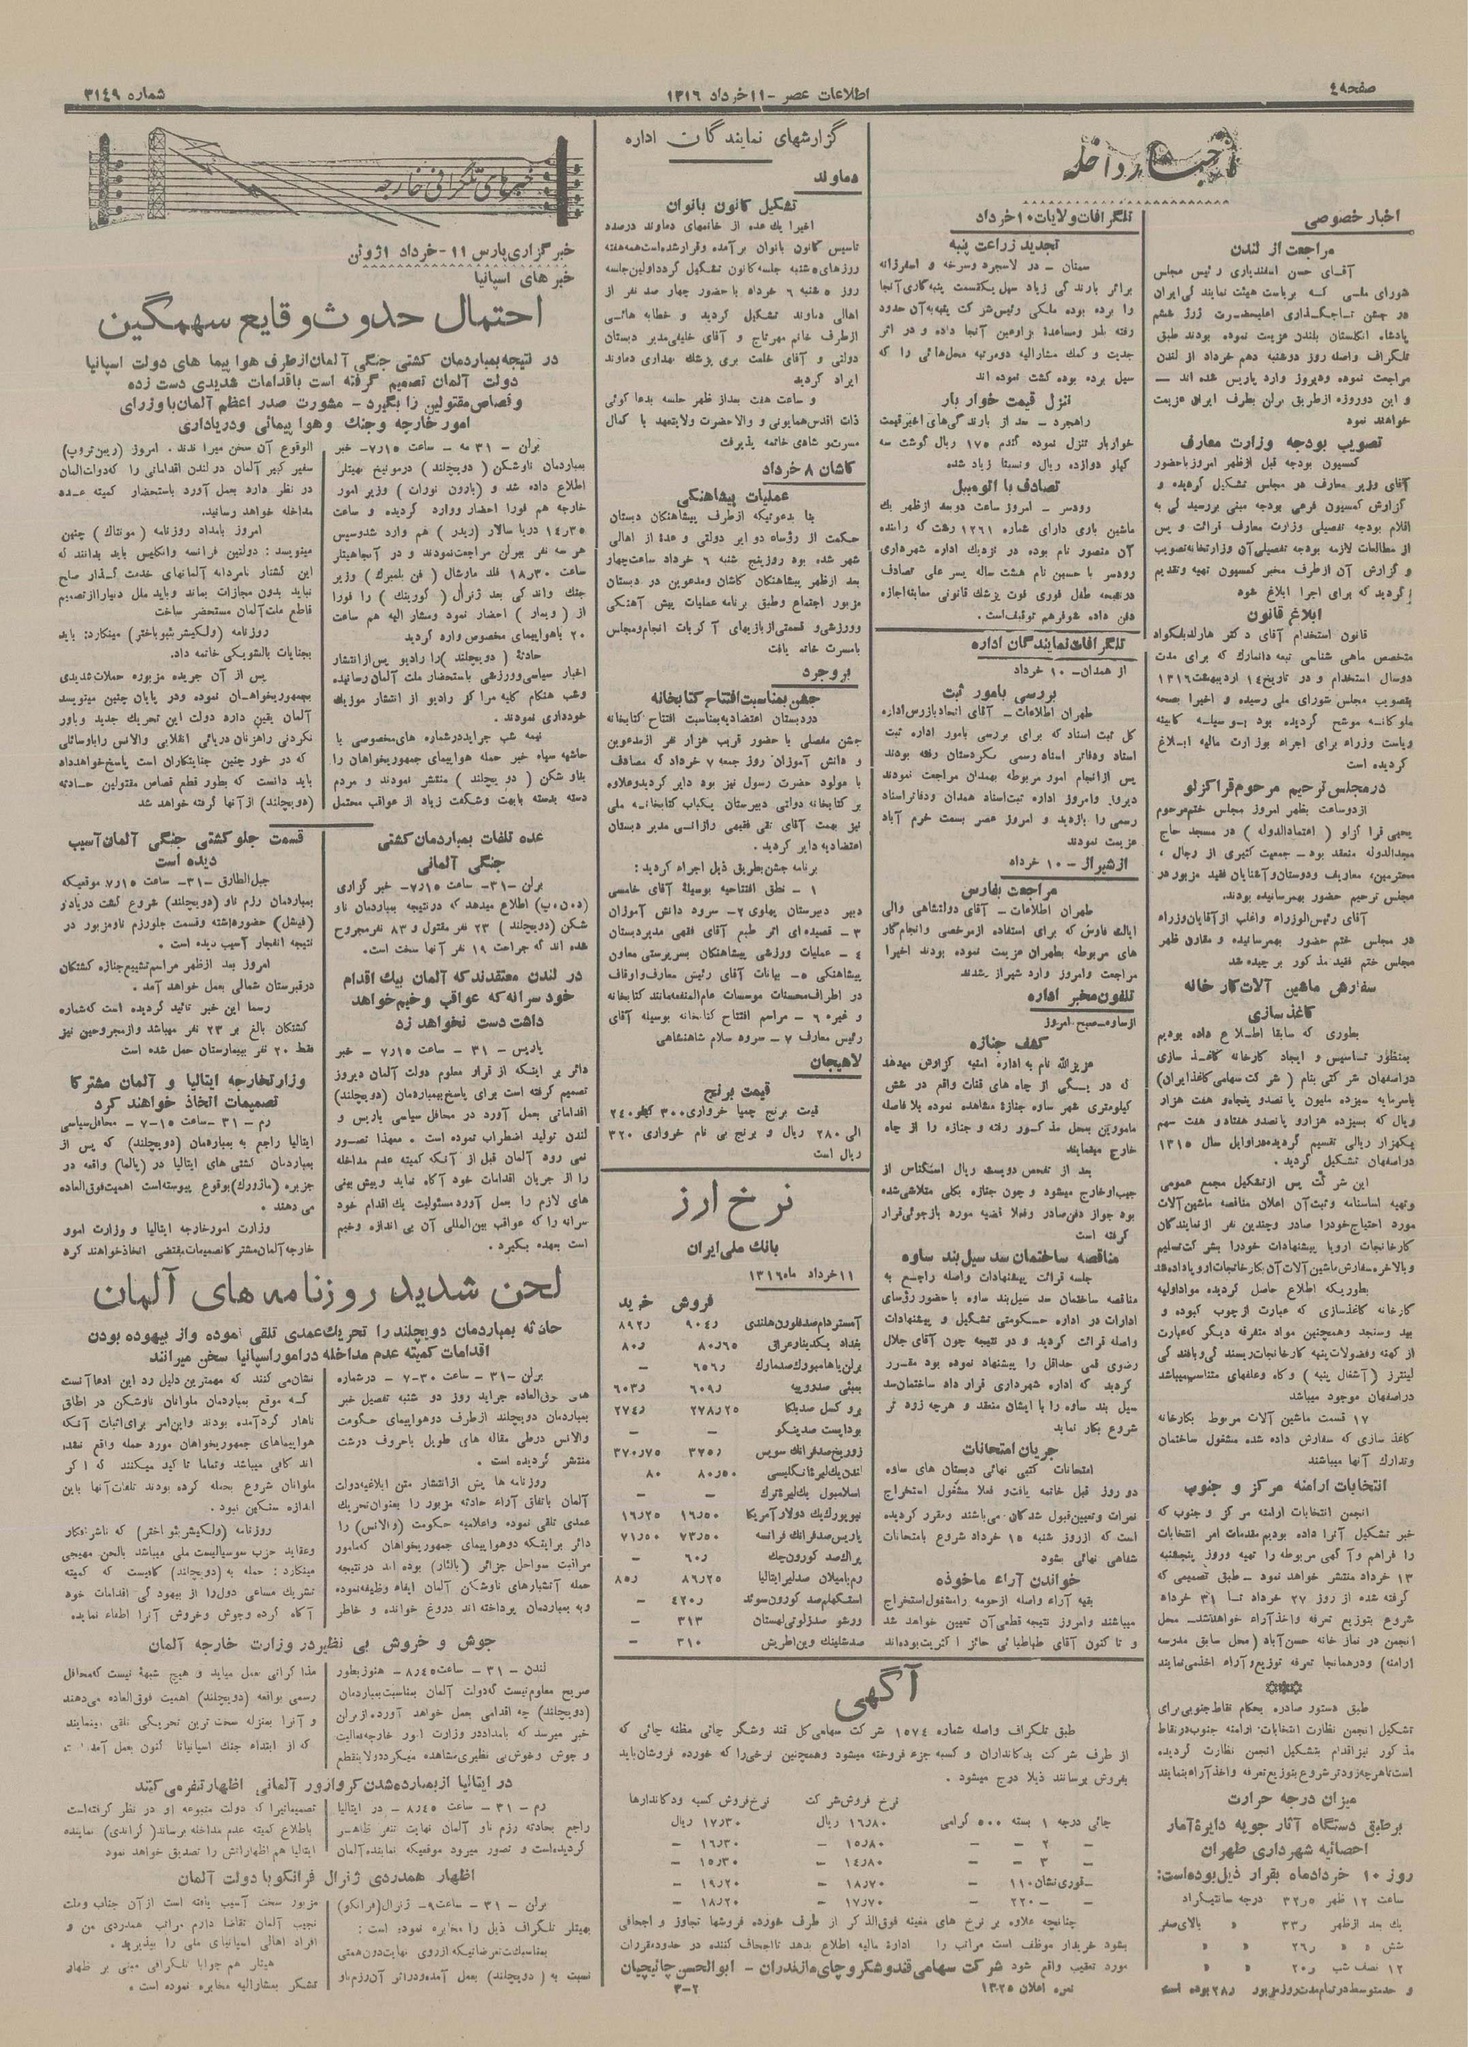 صفحه٤
اطلاعات عصر -۱۱خرداد ۱۳۱۶
شماره ۳۱٤۹
اخبار داخله
اخبار خصوصی
مراجعت از لندن
آقـای حسن اسفندیاری رئیس مجلس
شورای ملـی کـه بریاست هیئت نمایند گی ایران
در جشن تـاجـگـذاری اعلیحضـرت ژرژ ششم
پادشاه انگلستان بلندن عزیمت نموده بودند طبق
تلگراف واصله روز دوشنبه دهم خرداد از لندن
مراجعت نموده ودیروز وارد پاریس شده اند —
و این دوروزه ازطریق برلن بطرف ایران عزیمت
خواهند نمود
تصویب بودجه وزارت معارف
کمسیون بودجه قبل ازظهر امروز باحضور
آقای وزیر معارف در مجلس تشکیل گردیده و
گزارش کمسیون فرعی بودجه مبنی بررسید گی به
اقلام بودجه تفصیلی وزارت معارف قرائت و پس
از مطالعات لازمه بودجه تفصیلی آن وزارتخانه تصویب
و گزارش آن ازطرف مخبر کمسیون تهیه وتقدیم
گردید که برای اجرا ابلاغ شود
ابلاغ قانون
قانون استخدام آقای دکتر هارلدبلگواد
متخصص ماهی شناسی تبعه دانمارك که برای مدت
دوسال استخدام و در تاریخ۱٤ اردیبهشت۱۳۱۶
بتصویب مجلس شورای ملی رسیده و اخیرا بصحه
ملوکانـه موشح گردیده بود بـوسیلـه کابینه
ریاست وزراء برای اجراء بوزارت مالیه ابـلاغ
گردیده است
درمجلس ترحیم مرحوم قراگزلو
ازدوساعت بظهر امروز مجلس ختم مرحوم
یحیی قرا گزلو ( اعتمادالدوله ) در مسجد حاج
مجدالدوله منعقد بود- جمعیت کثیری از رجال ،
محترمین، معاریف ودوستان وآشنایان فقید مزبور در
مجلس ترحیم حضور بهمرسانیده بودند.
آقای رئیس الوزراء واغلب از آقایان وزراء
در مجلس ختم حضور بهمرسانیده و مقارن ظهر
مجلس ختم فقید مذکور بر چیده شد
سفارش ماشین آلات کارخانه
کاغذ سازی
بطوری که سابقا اطلاع داده بودیم
بمنظور تـاسیس و ایجاد کارخانه کاغـذ سازی
دراصفهان شرکتی بنام ( شرکت سهامی کاغذایران)
باسرمایه سیزده ملیون پانصدو پنجاه و هفت هزار
ریال که بسیزده هزارو پانصدو هفتادو هفت سهم
یکهزار ریالی تقسیم گردیده دراوایل سال ۱۳۱۵
دراصفهان تشکیل گردید .
این شرکت پس ازتشکیل مجمع عمومی
وتهیه اساسنامه وثبت آن اعلان مناقصه ماشین آلات
مورد احتیاج خودرا صادر وچندین نفر ازنمایندگان
کارخانجات اروپا پیشنهادات خودرا بشرکت تسلیم
وبالاخره سفارش ماشین آلات آن بکارخانجات اروپا داده شد
بطوریکه اطلاع حاصل گردیده مواد اولیه
کارخانه کاغذسازی که عبارت ازچوب کبوده و
بید وسنجد وهمچنین مواد متفرقه دیگر که عبارت
از کهنه وفضولات پنبه کارخانجات ریسند گی وبافند گی
لینترز (آشغال پنبه ) و کاه وعلفهای متناسب میباشد
دراصفهان موجود میباشد
۱۷ قسمت ماشین آلات مربوط بکارخانه
کاغذ سازی که سفارش داده شده مشغول ساختمان
وتدارك آنها میباشند
انتخابات ارامنه مرکز و جنوب
انجمن انتخابات ارامنه مرکز و جنوب که
خبر تشکیل آنرا داده بودیم مقدمات امر انتخابات
را فراهم و آگهی مربوطه را تهیه وروز پنجشنبه
۱۳ خرداد منتشر خواهد نمود — طبق تصمیمی که
گرفته شده از روز ۲۷ خرداد تـا ۳۱ خرداد
شروع بتوزیع تعرفه واخذآراء خواهدشد— محل
انجمن در نماز خانه حسن آباد (محل سابق مدرسه
ارامنه) ودرهمانجا تعرفه توزیع وآراء اخذ می نمایند
طبق دستور صادره بحکام نقاط جنوبی برای
تشکیل انجمن نظارت انتخابات ارامنه جنوب درنقاط
مذکور نیز اقدام بتشکیل انجمن نظارت گردیده
است تاهرچه زودتر شروع بتوزیع تعرفه واخذآراء نمایند
میزان درجه حرارت
برطبق دستگاه آثار جویه دایرهٔ آمار
احصائیه شهرداری طهران
روز ۱۰ خردادماه بقرار ذیل بوده است:
ساعت ۱۲ ظهر ۳۲٫۵ درجه سانتیگراد
یك بعد ازظهر ۳۳٫ « بالای صفر
شش « « ۲۶٫ « «
۱۲ نصف شب ۲۰٫ « «
و حد متوسط در تمام مدت روز مزبور ۲۸٫ بوده است
تلگرافات ولایات ۱۰ خرداد
تجدید زراعت پنبه
سمنان — در لاسجرد وسرخه و افترزانه
براثر بارند گی زیاد سیل یکقسمت پنبه کاری آنجا
را برده بوده ملکی رئیس شرکت پنبه به آن حدود
رفته بذر ومساعدهٔ بزارعین آنجا داده و در اثر
جدیت و کمك مشارالیه دومرتبه محل هائی را که
سیل برده بوده کشت نموده اند
تنزل قیمت خوار بار
راهجرد — بعد از بارند گی های اخیر قیمت
خواربار تنزل نموده گندم ۱۷۵ ریال گوشت سه
کیلو دوازده ریال ونسبتا زیاد شده
تصادف با اتومبیل
رودسر — امروز ساعت دوسه ازظهر یك
ماشین باری دارای شماره ۱۲۶۱ رشت که راننده
آن منصور نام بوده در نزدیك اداره شهرداری
رودسر با حسین نام هشت ساله پسر علی تصادف
درنتیجه طفل فوری فوت پزشك قانونی معاینه اجازه
دفن داده شوفرهم توقیف است.
تلگرافات نمایندگان اداره
از همدان— ۱۰ خرداد
بررسی بامور ثبت
طهران اطلاعات — آقای اتحاد بازرس اداره
کل ثبت اسناد که برای بررسی بامور اداره ثبت
اسناد ودفاتر اسناد رسمی بکردستان رفته بودند
پس ازانجام امور مربوطه بهمدان مراجعت نمودند
دیروز وامروز اداره ثبت اسناد همدان ودفاتر اسناد
رسمی را بازدید و امروز عصر بسمت خرم آباد
عزیمت نمودند
ازشیراز— ۱۰ خرداد
مراجعت بفارس
طهران اطلاعات— آقای دولتشاهی والی
ایالت فارس که برای استفاده ازمرخصی وانجام کار
های مربوطه بطهران عزیمت نموده بودند اخیرا
مراجعت وامروز وارد شیراز شدند
تلفون مخبر اداره
ازساوه—صبح امروز
کشف جنازه
عزیزالله نام به اداره امنیه گزارش میدهد
که در یـکی از چاه های قنات واقع در شش
کیلومتری شهر ساوه جنازهٔ مشاهده نموده بلا فاصله
مامورین بمحل مذکور رفته و جنازه را از چاه
خارج مینمایند
بعد از تفحص دویست ریال اسکناس از
جیب او خارج میشود و چون جنازه بکلی متلاشی شده
بود جواز دفن صادر وفعلا قضیه مورد بازجوئی قرار
گرفته است
مناقصه ساختمان سد سیل بند ساوه
جلسه قرائت پیشنهادات واصله راجـع به
مناقصه ساختمان سد سیل بند ساوه با حضور رؤسای
ادارات در اداره حکـومتی تشکیل و پیشنهادات
واصله قرائت گردید و در نتیجه چون آقای جلال
رضوی قمی حداقل را پیشنهاد نموده بود مقـرر
گردید که اداره شهرداری قرار داد ساختمان سد
سیل بند ساوه را با ایشان منعقد و هرچه زود تر
شروع بکار نماید
جریان امتحانات
امتحانات کتبی نهائی دبستان های ساوه
دو روز قبل خاتمه یافت و فعلا مشغول استخراج
نمرات وتعیین قبول شدگان می باشند ومقرر گردیده
است که ازروز شنبه ۱۵ خرداد شروع بامتحانات
شفاهی نهائی شود
خواندن آراء ماخوذه
بقیه آراء واصله ازحومه رامشغول استخراج
میباشند وامروز نتیجه قطعی آن تعیین خواهد شد
و تا کنون آقای طباطبائی حائز اکثریت بوده اند
گزارشهای نمایندگان اداره
دماوند
تشکیل کانون بانوان
اخیرا یك عده از خانمهای دماوند درصدد
تاسیس کانون بانوان برآمده وقرارشده است همه هفته
روزهای ٥شنبه جلسه کانون تشکیل گردد اولین جلسه
روز ٥شنبه ۶ خرداد با حضور چهار صد نفر از
اهالی دماوند تشکیل گردید و خطابه هائـی
ازطرف خانم مهرتاج و آقای خلیفی مدیر دبستان
دولتی و آقای خلعت بری پزشك بهداری دماوند
ایراد گردید
و ساعت هفت بعداز ظهر جلسه بدعا گوئی
ذات اقدس همایونی و والاحضرت ولایتعهد با کمال
مسرت و شادی خاتمه پذیرفت
کاشان ۸ خرداد
عملیات پیشاهنگی
بنا بدعوتیکه ازطرف پیشاهنگان دبستان
حکمت از رؤساء دوایر دولتی و عدهٔ از اهالی
شهر شده بود روزپنج شنبه ۶ خرداد ساعت چهار
بعد ازظهر پیشاهنگان کاشان ومدعوین در دبستان
مزبور اجتماع وطبق برنامه عملیات پیش آهنگی
وورزشی و قسمتی از بازیهای آکربات انجام ومجلس
بامسرت خاتمه یافت
بروجرد
جشن بمناسبت افتتاح کتابخانه
دردبستان اعتضادیه بمناسبت افتتاح کتابخانه
جشن مفصلی با حضور قریب هزار نفر ازمدعوین
و دانش آموزان روز جمعه ۷ خرداد که مصادف
با مولود حضرت رسول نیز بود دایر گردید وعلاوه
بر کتابخانه دولتی دبیرستان یکباب کتابخانـه ملی
نیز بهمت آقای تقی فقیهی رازانـی مدیر دبستان
اعتضادیه دایر گردید .
برنامه جشن بطریق ذیل اجراء گردید :
۱ — نطق افتتاحیه بوسیلهٔ آقای خامسی
دبیر دبیرستان پهلوی ۲— سرود دانش آموزان
۳ — قصیده ای اثر طبع آقای فقهی مدیر دبستان
٤ — عملیات ورزشی پیشاهنگان بسرپرستی معاون
پیشاهنگی ٥— بیانات آقای رئیس معارف واوقاف
در اطراف محسنات موسسات عام المنفعه مانند کتابخانه
و غیره ۶ — مراسم افتتاح کتابخانه بوسیله آقای
رئیس معارف ۷ — سرود سلام شاهنشاهی
لاهیجان
قیمت برنج
قیمت برنج چمپا خرواری۳۰۰ کیلو ۲٤۰
الی ۲۸۰ ریال و برنج بی نام خرواری ۳۲۰
ریال است
نرخ ارز
بانك ملی ایران
۱۱خرداد ماه۱۳۱۶
فروش خرید
آمستردام صدفلورن هلندی ۹۰٤٫ ۸۹۲٫
بغداد یکدینار عراق ۸۰٫۶٥ ۸۰٫
برلن یا هامبورك صد مارك ۶٥۶٫ —
بمبئی صدروپیه ۶۰۹٫ ۶۰۳٫
بروکسل صدبلگا ۲۷۸٫۲٥ ۲۷٤٫
بوداپست صدپنگو — —
زوریخ صد فرانك سویس ۳۷٥٫ ۳۷۰٫۷٥
لندن یك لیرهٔ انگلیسی ۸۰٫٥۰ ۸۰
اسلامبول یك لیرهٔ ترك — —
نیویورك یك دولار آمریکا ۱۶٫٥۰ ۱۶٫۲٥
پاریس صد فرانك فرانسه ۷۳٫٥۰ ۷۱٫٥۰
پراك صد کورون چك ۶۰٫ —
رم یا میلان صد لیر ایتالیا ۸۶٫۲٥ ۸٥٫
استکهلم صد کورون سوئد ٤۲۰٫ —
ورشو صد زلوتی لهستان ۳۱۳ —
صدشلینك وین اطریش ۳۱۰ —
آگهی
طبق تلگراف واصله شماره ۱٥۷٤ شرکت سهامی کل قند وشکر چائی مظنه چائی که
از طرف شرکت بدکانداران و کسبه جزء فروخته میشود وهمچنین نرخی را که خورده فروشان باید
بفروش برسانند ذیلا درج میشود .
نرخ فروش شرکت نرخ فروش کسبه ودکاندارها
چائی درجه ۱ بسته ٥۰۰ گرامی ۱۶٫۸۰ ریال ۱۷٫۳۰ ریال
— ۲ — — ۱٥٫۸۰ — ۱۶٫۳۰ —
— ۳ — — ۱٤٫۸۰ — ۱٥٫۳۰ —
— قوری نشان ۱۱۰ ۱۸٫۷۰ — ۱۹٫۲۰ —
— — ۲۲۰ ۱۷٫۷۰ — ۱۸٫۲۰ —
چنانچه علاوه بر نرخ های معینه فوق الذکر از طرف خورده فروشها تجاوز و اجحافی
بشود خریدار موظف است مراتب را ادارهٔ مالیه اطلاع بدهد تا اجحاف کننده در حدود مقررات
مورد تعقیب واقع شود شرکت سهامی قند و شکر و چای مازندران — ابوالحسن چائیچیان
نمره اعلان ۱۳۰۲٥ ۲—۳
خبرهای تلگرافی خارجه
خبرگزاری پارس ۱۱- خرداد ۱ژوئن
خبر های اسپانیا
احتمال حدوث وقایع سهمگین
در نتیجه بمباردمان کشتی جنگی آلمان ازطرف هوا پیما های دولت اسپانیا
دولت آلمان تصمیم گرفته است با قدامات شدیدی دست زده
وقصاص مقتولین را بگیرد — مشورت صدر اعظم آلمان با وزرای
امور خارجه و جنك وهوا پیمائی ودریاداری
برلن — ۳۱ مه — ساعت ۷٫۱٥— خبر
بمباردمان ناوشکن ( دویچلند ) درمونیخ بهیتلر
اطلاع داده شد و (بارون نورات ) وزیر امور
خارجه هم فورا احضار ووارد گردیده و ساعت
۱٤٫۳٥ دریا سالار (ریدر ) هم وارد شد وسپس
هر سه نفر ببرلن مراجعت نمودند و در آنجا هیتلر
ساعت ۱۸٫۳۰ فلد مارشال ( فن بلمبرك ) وزیر
جنك واند کی بعد ژنرال ( گورینك ) را فورا
از ( ویمار ) احضار نمود ومشار الیه هم ساعت
۲۰ باهواپیمای مخصوص وارد گردید
حادثهٔ ( دویچلند )را رادیو پس از انتشار
اخبار سیاسی وورزشی باستحضار ملت آلمان رسانیده
وشب هنگام کلیه مراکز رادیو از انتشار موزیك
خودداری نمودند .
نیمه شب جراید درشماره های مخصوصی با
حاشیه سیاه خبر حمله هواپیمای جمهوریخواهان را
بناو شکن ( دویچلند ) منتشر نمودند و مردم
دسته بدسته بابهت وشگفت زیاد از عواقب محتمل
الوقوع آن سخن میراندند . امروز (ریبن تروپ)
سفیر کبیر آلمان درلندن اقداماتی را که دولت المان
در نظر دارد بعمل آورد باستحضار کمیته عـده
مداخله خواهد رسانید.
امروز بامداد روزنامه (مونتاك ) چنین
مینویسد : دولتین فرانسه وانگلیس باید بدانند که
این کشتار نامردانه آلمانهای خدمت گذار صلح
نباید بدون مجازات بماند وباید ملل دنیارا ازتصمیم
قاطع ملت آلمان مستحضر ساخت
روزنامه (ولکیشر بئو باختر) مینگارد: باید
بجنایات بالشویکی خاتمه داد.
پس از آن جریده مزبوره حملات شدیدی
بجمهوریخواهـان نموده ودر پایان چنین مینویسد
آلمان یقین دارد دولت این تحریك جدید وباور
نکردنی راهزنان دریائی انقلابی والانس را با وسائلی
که در خور چنین جنایتکاران است پاسخ خواهد داد
باید دانست که بطور قطع قصاص مقتولین حـادثه
(دویچلند) از آنها گرفته خواهد شد
عده تلفات بمباردمان کشتی
جنگی آلمانی
برلن —۳۱— ساعت ۷٫۱٥— خبر گزاری
(د.ن.ب) اطلاع میدهد که درنتیجه بمباردمان ناو
شکن (دویچلند ) ۲۳ نفر مقتول و ۸۳ نفر مجروح
شده اند که جراحت ۱۹ نفر آنها سخت است.
در لندن معتقدند که آلمان بیك اقدام
خود سرانه که عواقب وخیم خواهد
داشت دست نخواهد زد
پاریس — ۳۱ — ساعت ۷٫۱٥ — خبر
دائر بر اینکه از قرار معلوم دولت آلمان دیروز
تصمیم گرفته است برای پاسخ ببمباردمان (دویچلند)
اقداماتی بعمل آورد در محافل سیاسی پاریس و
لندن تولید اضطراب نموده است . معهذا تصـور
نمی رود آلمان قبل از آنکه کمیته عدم مداخله
را از جریان اقدامات خود آگاه نماید وپیش بینی
های لازم را بعمل آورد مسئولیت یك اقدام خود
سرانه را که عواقب بین المللی آن بی اندازه وخیم
است بعهده بگیرد .
قسمت جلو کشتی جنگی آلمان آسیب
دیده است
جبل الطارق —۳۱— ساعت ۷٫۱٥ موقعیکه
بمباردمان رزم ناو (دویچلند) شروع گشت دریادار
(فیشل) حضورداشته وقسمت جلورزم ناومزبور در
نتیجه انفجار آسیب دیده است .
امروز بعد ازظهر مراسم تشییع جنازه کشتگان
درقبرستان شمالی بعمل خواهد آمد .
رسما این خبر تائید گردیده است که شماره
کشتگان بالغ بر ۲۳ نفر میباشد وازمجروحین نیز
فقط ۲۰ نفر ببیمارستان حمل شده است
وزارتخارجه ایتالیا و آلمان مشترکا
تصمیمات اتخاذ خواهند کرد
رم — ۳۱ — ساعت۱٥—۷ — محافل سیاسی
ایتالیا راجع به بمباردمان (دویچلند) که پس از
بمباردمان کشتی های ایتالیا در (پالما) واقعه در
جزیره (ماژورك)بوقوع پیوسته است اهمیت فوق العاده
می دهند .
وزارت امورخارجه ایتالیا و وزارت امور
خارجه آلمان مشترکا تصمیمات مقتضی اتخاذخواهند کرد
لحن شدید روزنامه های آلمان
حادثه بمباردمان دویچلند را تحریك عمدی تلقی نموده واز بیهوده بودن
اقدامات کمیته عدم مداخله در امور اسپانیا سخن میرانند
برلن —۳۱— ساعت ۷-۳۰ — درشماره
های فوق العاده جراید روز دو شنبه تفصیل خبر
بمباردمان دویچلند ازطرف دوهواپیمای حکومت
والانس درطی مقاله های طویل باحروف درشت
منتشر گردیده است .
روزنامه ها پس ازانتشار متن ابلاغیه دولت
آلمان باتفاق آراء حادثه مزبور را بعنوان تحریك
عمدی تلقی نموده واعلامیه حکومت (والانس) را
دائر براینکه دوهواپیمای جمهوریخواهان که مامور
مراقبت سواحل جزائر (بالئار) بوده اند درنتیجه
حمله آتشبارهای ناوشکن آلمان ایفاء وظیفه نموده
وبه بمباردمان پرداخته اند دروغ خوانده و خاطر
نشان می کنند که مهمترین دلیل رد این ادعا آنست
که موقع بمباردمان ملوانان ناوشکن در اطاق
ناهار گردآمده بودند واین امر برای اثبات آنکه
هواپیماهای جمهوریخواهان مورد حمله واقع نشده
اند کافی میباشد وتماما تا کید میکنند که اگر
ملوانان شروع بحمله کرده بودند تلفات آنها باین
اندازه سنگین نبود .
روزنامه (ولکیشر بئو اختر) که ناشر افکار
وعقاید حزب سوسیالیست ملی میباشد بالحن مهیجی
مینگارد : حمله به (دویچلند) کافیست که کمیته
تشریك مساعی دول را از بیهود گی اقدامات خود
آگاه کرده وجوش وخروش آنرا اطفاء نماید
جوش و خروش بی نظیر در وزارت خارجه آلمان
لندن —۳۱ — ساعت۸٫٤٥ — هنوز بطور
صریح معلوم نیست که دولت آلمان بمناسبت بمباردمان
(دویچلند) چه اقدامی بعمل خواهد آورد از برلن
خبر میرسد که بامداد در وزارت امور خارجه فعالیت
و جوش وخروش بی نظیری مشاهده میگردد ولاینقطع
مذاکراتی بعمل میاید و هیچ شبهه نیست که محافل
رسمی بواقعه (دویچلند) اهمیت فوق العاده می دهند
و آنرا بمنزله سخت ترین تحریکی تلقی مینمایند
که از ابتداء جنك اسپانیا تا کنون بعمل آمده است
در ایتالیا از بمبارده شدن کروازور آلمانی اظهار تنفر می کنند
رم — ۳۱ — ساعت ۸٫٤٥ — در ایتالیا
راجع بحادثه رزم ناو آلمان نهایت تنفر ظاهـر
گردیده است و تصور میرود موقعیکه نماینده آلمان
تصمیماتیرا که دولت متبوعه او در نظر گرفته است
باطلاع کمیته عدم مداخله برساند( گراندی) نماینده
ایتالیا هم اظهاراتش را تصدیق خواهد نمود
اظهار همدردی ژنرال فرانکو با دولت آلمان
برلن —۳۱— ساعت ۹— ژنرال(فرانکو)
بهیتلر تلگراف ذیل را مخابره نموده است :
بمناسبت تعرضاتیکه ازروی نهایت دون همتی
نسبت به ( دویچلند) بعمل آمده ودراثر آن رزم ناو
مزبور سخت آسیب یافته است ازآن جناب وملت
نجیب آلمان تقاضا دارم مراتب همدردی من و
افراد اهالی اسپانیای ملی را بپذیرید .
هیتلر هم جوابا تلگرافی مبنی بر اظهار
تشکر بمشارالیه مخابره نموده است .